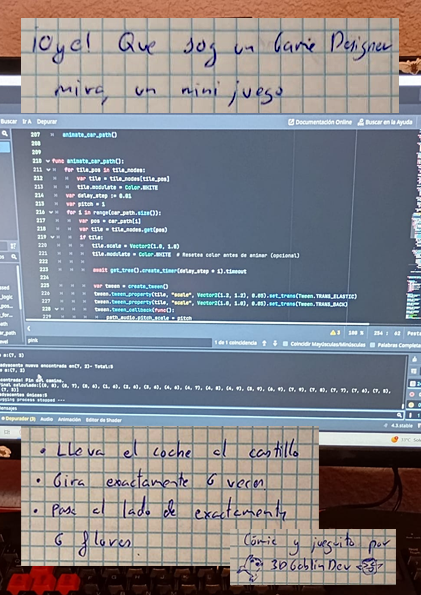 ¡Oye! Que soy un Game Designer
mira, un mini juego
Buscar Ir A Depurar
Documentación Online Buscar en la Ayuda
207 animate_car_path()
208
209
210 func animate_car_path():
211 for tile_pos in tile_nodes:
212 var tile = tile_nodes[tile_pos]
213 tile.modulate = Color.WHITE
214 var delay_step := 0.01
215 var pitch = 1
216 for i in range(car_path.size()):
217 var pos = car_path[i]
218 var tile = tile_nodes.get(pos)
219 if tile:
220 tile.scale = Vector2(1.0, 1.0)
221 tile.modulate = Color.WHITE # Resetea color antes de animar (opcional)
222
223 await get_tree().create_timer(delay_step * i).timeout
224
225 var tween = create_tween()
226 tween.tween_property(tile, "scale", Vector2(1.3, 1.3), 0.05).set_trans(Tween.TRANS_ELASTIC)
227 tween.tween_property(tile, "scale", Vector2(1.0, 1.0), 0.05).set_trans(Tween.TRANS_BACK)
228 tween.tween_callback(func():
229 path_audio.pitch_scale = pitch
100 %
pink
1 de 1 coincidencia
Coincidir Mayúsculas/Minúsculas
Palabras Completas
Audio Animación Editor de Shader
4.3.stable
• Lleva el coche al castillo
• Gira exactamente 6 veces
• Pasa al lado de exactamente
6 flores.
Cómic y jueguito por
3DGoblinDev